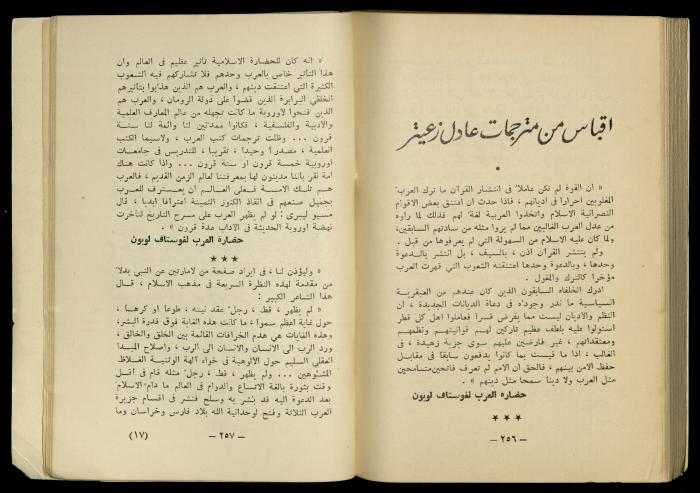 اقباس من مترجمات عادل زعيتر
•
« ان القوة لم تكن عاملا في انتشار القرآن ما ترك العرب
المغلوبين أحرارا في أديانهم ، فاذا حدث ان اعتنق بعض الاقوام
النصرانية الاسلام واتخذوا العربية لغة لهم فذلك لما رأوه
من عدل العرب الغالبين مما لم يروا مثله من سادتهم السابقين،
ولما كان عليه الاسلام من السهولة التي لم يعرفوها من قبل .
ولم ينتشر القرآن اذن ، بالسيف ، بل انتشر بالدعوة
وحدها ، وبالدعوة وحدها اعتنقته الشعوب التي قهرت العرب
مؤخرا كالترك والمغول .
ادرك الخلفاء السابقون الذين كان عندهم من العبقرية
السياسية ما ندر وجوده في دعاة الديانات الجديدة ، ان
النظم والاديان ليست مما يفرض قسرا فعاملوا أهل كل قطر
استولوا عليه بلطف عظيم تاركين لهم قوانينهم ونظمهم
ومعتقداتهم ، غير فارضين عليهم سوى جزية زهيدة ، في
الغالب ، اذا ما قيست بما كانوا يدفعون سابقا في مقابل
حفظ الامن بينهم ، فالحق ان الامم لم تعرف فاتحين متسامحين
مثل العرب ولا دينا سمحا مثل دينهم » .
حضارة العرب لغوستاف لوبون
★ ★ ★
— ٢٥٦ —
« انه كان للحضارة الاسلامية تأثير عظيم في العالم وان
هذا التأثير خاص بالعرب وحدهم فلا تشاركهم فيه الشعوب
الكثيرة التي اعتنقت دينهم ، والعرب هم الذين هذبوا بتأثيرهم
الخلقي البرابرة الذين قضوا على دولة الرومان ، والعرب هم
الذين فتحوا لأوروبة ما كانت تجهله من عالم المعارف العلمية
والادبية والفلسفية ، فكانوا ممدنين لنا وأئمة لنا ستة
قرون ... وظلت ترجمات كتب العرب ، ولاسيما الكتب
العلمية ، مصدرا وحيدا ، تقريبا ، للتدريس في جامعات
اوروبة خمسة قرون او ستة قرون ... واذا كانت هناك
امة نقر بأننا مدينون لها بمعرفتنا لعالم الزمن القديم ، فالعرب
هم تلك الامة فعلى العالم ان يعترف للعرب
بجميل صنعهم في انقاذ الكنوز الثمينة اعترافا أبديا ، قال
مسيو ليبري : لو لم يظهر العرب على مسرح التاريخ لتأخرت
نهضة اوروبة الحديثة في الآداب عدة قرون » .
حضارة العرب لغوستاف لوبون
★★★
« وليؤذن لنا ، في ايراد صفحة من لامارتين عن النبي بدلا
من مقدمة لهذه النظرة السريعة في مذهب الاسلام ، قال
هذا الشاعر الكبير :
« لم يظهر ، قط ، رجل عقد نيته ، طوعا او كرها ،
حول غاية أعظم سموا ، ما كانت هذه الغاية فوق قدرة البشر،
وهذه الغايات هي هدم الخرافات القائمة بين الخلق والخالق،
ورد الرب الى الانسان والانسان الى الرب ، واصلاح المبدأ
العقلي السليم حول الألوهية في خواء آلهة الوثنية الغلاظ
المشوهين ... ولم يظهر ، قط ، رجل مثله قام في اقل
وقت بثورة بالغة الاتساع والدوام في العالم ما دام الاسلام
بعد الدعوة اليه قد بشر به وسلح فنشر في أقسام جزيرة
العرب الثلاثة وفتح لوحدانية الله بلاد فارس وخراسان وما
— ٢٥٧ —
(١٧)